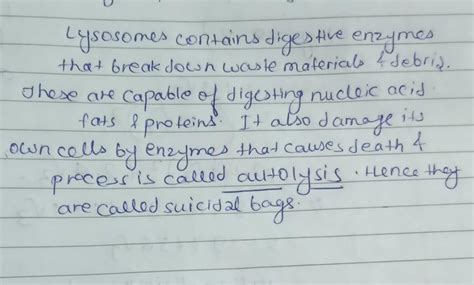 Lysosomes contains digestive enzymes
that break down waste materials & debris.
These are capable of digesting nucleic acid
fats & proteins. It also damage its
own cells by enzymes that causes death &
process is called autolysis. Hence they
are called suicidal bags.